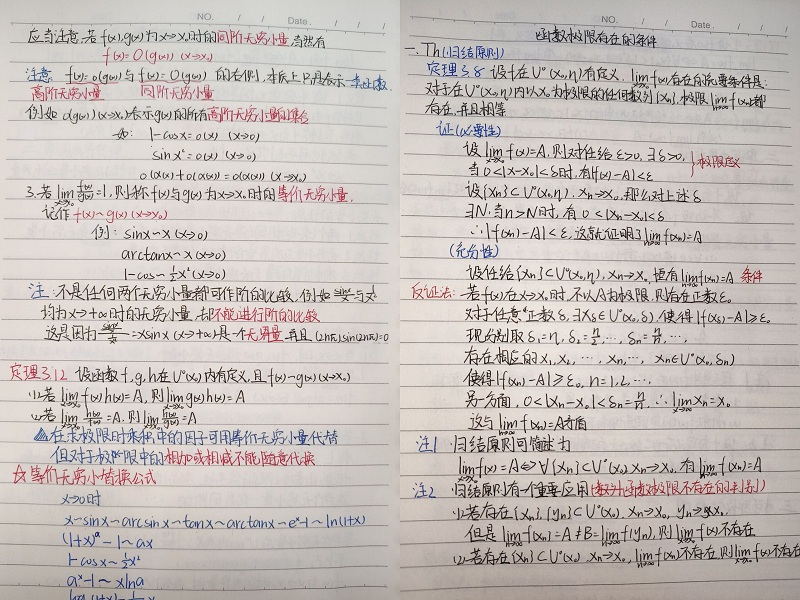 NO.
Date.
应当注意,若f(x),g(x)为x→x₀时的同阶无穷小量,当然有
f(x)=O(g(x)) (x→x₀)
注意 f(x)=o(g(x))与f(x)=O(g(x)) 的右侧,本质上只是表示一类函数
高阶无穷小量 同阶无穷小量
例如 o(g(x))(x→x₀)表示g(x)的所有高阶无穷小量的集合
如: 1-cosx=o(x) (x→0)
sinx²=o(x) (x→0)
o(x)+o(x)=o(x) (x→0)
3.若lim f(x)/g(x)=1,则称f(x)与g(x)为x→x₀时的等价无穷小量.
x→x₀
记作 f(x)~g(x)(x→x₀)
例: sinx~x(x→0)
arctanx~x(x→0)
1-cosx~½x²(x→0)
注: 不是任何两个无穷小量都可作阶的比较,例如 sinx/x与1/x²
均为x→+∞时的无穷小量,却不能进行阶的比较
这是因为 =xsinx(x→+∞)是一个无界量,并且(2nπ)sin(2nπ)=0
定理3.12 设函数f,g,h在U°(x₀)内有定义,且f(x)~g(x)(x→x₀)
(1)若lim f(x)h(x)=A,则lim g(x)h(x)=A
(2)若lim h(x)/f(x)=A,则lim h(x)/g(x)=A
△在求极限时乘积中的因子可用等价无穷小量代替
但对于极限中的相加或相减不能随意代换
☆等价无穷小替换公式
x→0时
x~sinx~arcsinx~tanx~arctanx~eˣ-1~ln(1+x)
(1+x)ᵃ-1~ax
1-cosx~½x²
aˣ-1~xlna
NO.
Date.
函数极限存在的条件
一.Th(归结原则)
定理3.8 设f在U°(x₀,η)有定义.lim f(x)存在的充要条件是:
对于在U°(x₀,η)内以x₀为极限的任何数列{xₙ},极限lim f(xₙ)都
存在,并且相等
证(必要性)
设lim f(x)=A,则对任给ε>0,∃δ>0,
当0<|x-x₀|<δ时,有|f(x)-A|<ε }极限定义
设{xₙ}⊂U°(x₀,η),xₙ→x₀.那么对上述δ
∃N.当n>N时,有0<|xₙ-x₀|<δ
∴|f(xₙ)-A|<ε,这就证明了lim f(xₙ)=A
(充分性)
设任给{xₙ}⊂U°(x₀,η),xₙ→x₀,恒有lim f(xₙ)=A 条件
反证法:若f(x)在x→x₀时,不以A为极限,则存在正数ε₀
对于任意正数δ,∃xδ∈U°(x₀,δ),使得|f(xδ)-A|≥ε₀
现分别取δ₁=η,δ₂=η/2,…,δₙ=η/n,…
存在相应的x₁,x₂,…,xₙ,… xₙ∈U°(x₀,δₙ)
使得|f(xₙ)-A|≥ε₀,n=1,2,…
另一方面,0<|xₙ-x₀|<δₙ=η/n,∴lim xₙ=x₀
这与lim f(xₙ)=A矛盾
注1 归结原则可简述为
lim f(x)=A⇔∀{xₙ}⊂U°(x₀),xₙ→x₀,有lim f(xₙ)=A
注2 归结原则有一个重要应用(数列函数极限不存在的判别)
(1)若存在{xₙ},{yₙ}⊂U°(x₀),xₙ→x₀,yₙ→x₀.
但是 lim f(xₙ)=A≠B=lim f(yₙ),则lim f(x)不存在
(2)若存在{xₙ}⊂U°(x₀),xₙ→x₀,lim f(xₙ)不存在,则lim f(x)不存在